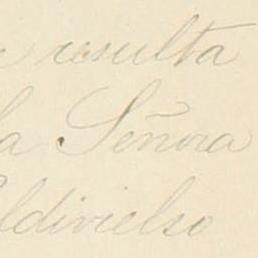 resulta
la Señora
Valdivielso